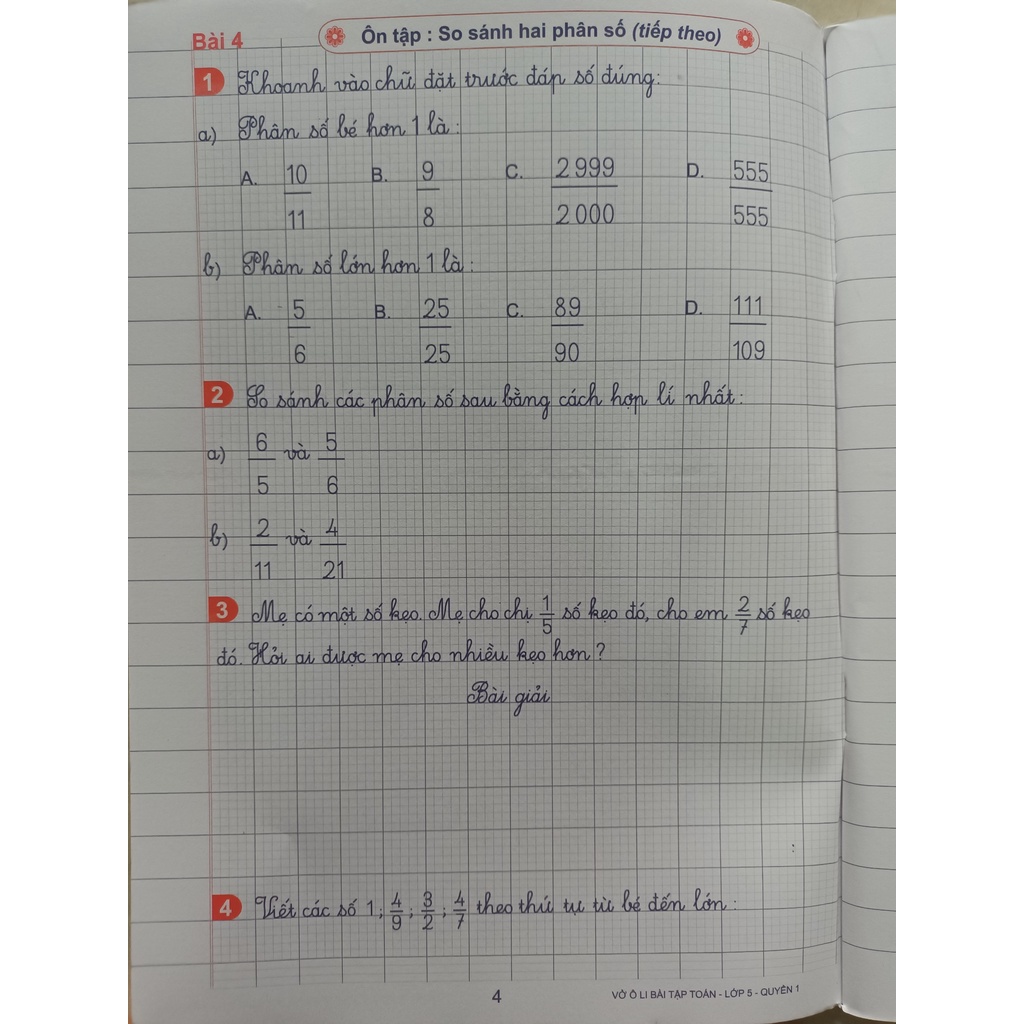 Bài 4
Ôn tập : So sánh hai phân số (tiếp theo)
1 Khoanh vào chữ đặt trước đáp số đúng:
a) Phân số bé hơn 1 là:
A. 10/11 B. 9/8 C. 2999/2000 D. 555/555
b) Phân số lớn hơn 1 là:
A. 5/6 B. 25/25 C. 89/90 D. 111/109
2 So sánh các phân số sau bằng cách hợp lí nhất:
a) 6/5 và 5/6
b) 2/11 và 4/21
3 Mẹ có một số kẹo. Mẹ cho chị 1/5 số kẹo đó, cho em 2/7 số kẹo
đó. Hỏi ai được mẹ cho nhiều kẹo hơn?
Bài giải
4 Viết các số 1; 4/9; 3/2; 4/7 theo thứ tự từ bé đến lớn:
4
VỞ Ô LI BÀI TẬP TOÁN - LỚP 5 - QUYỂN 1